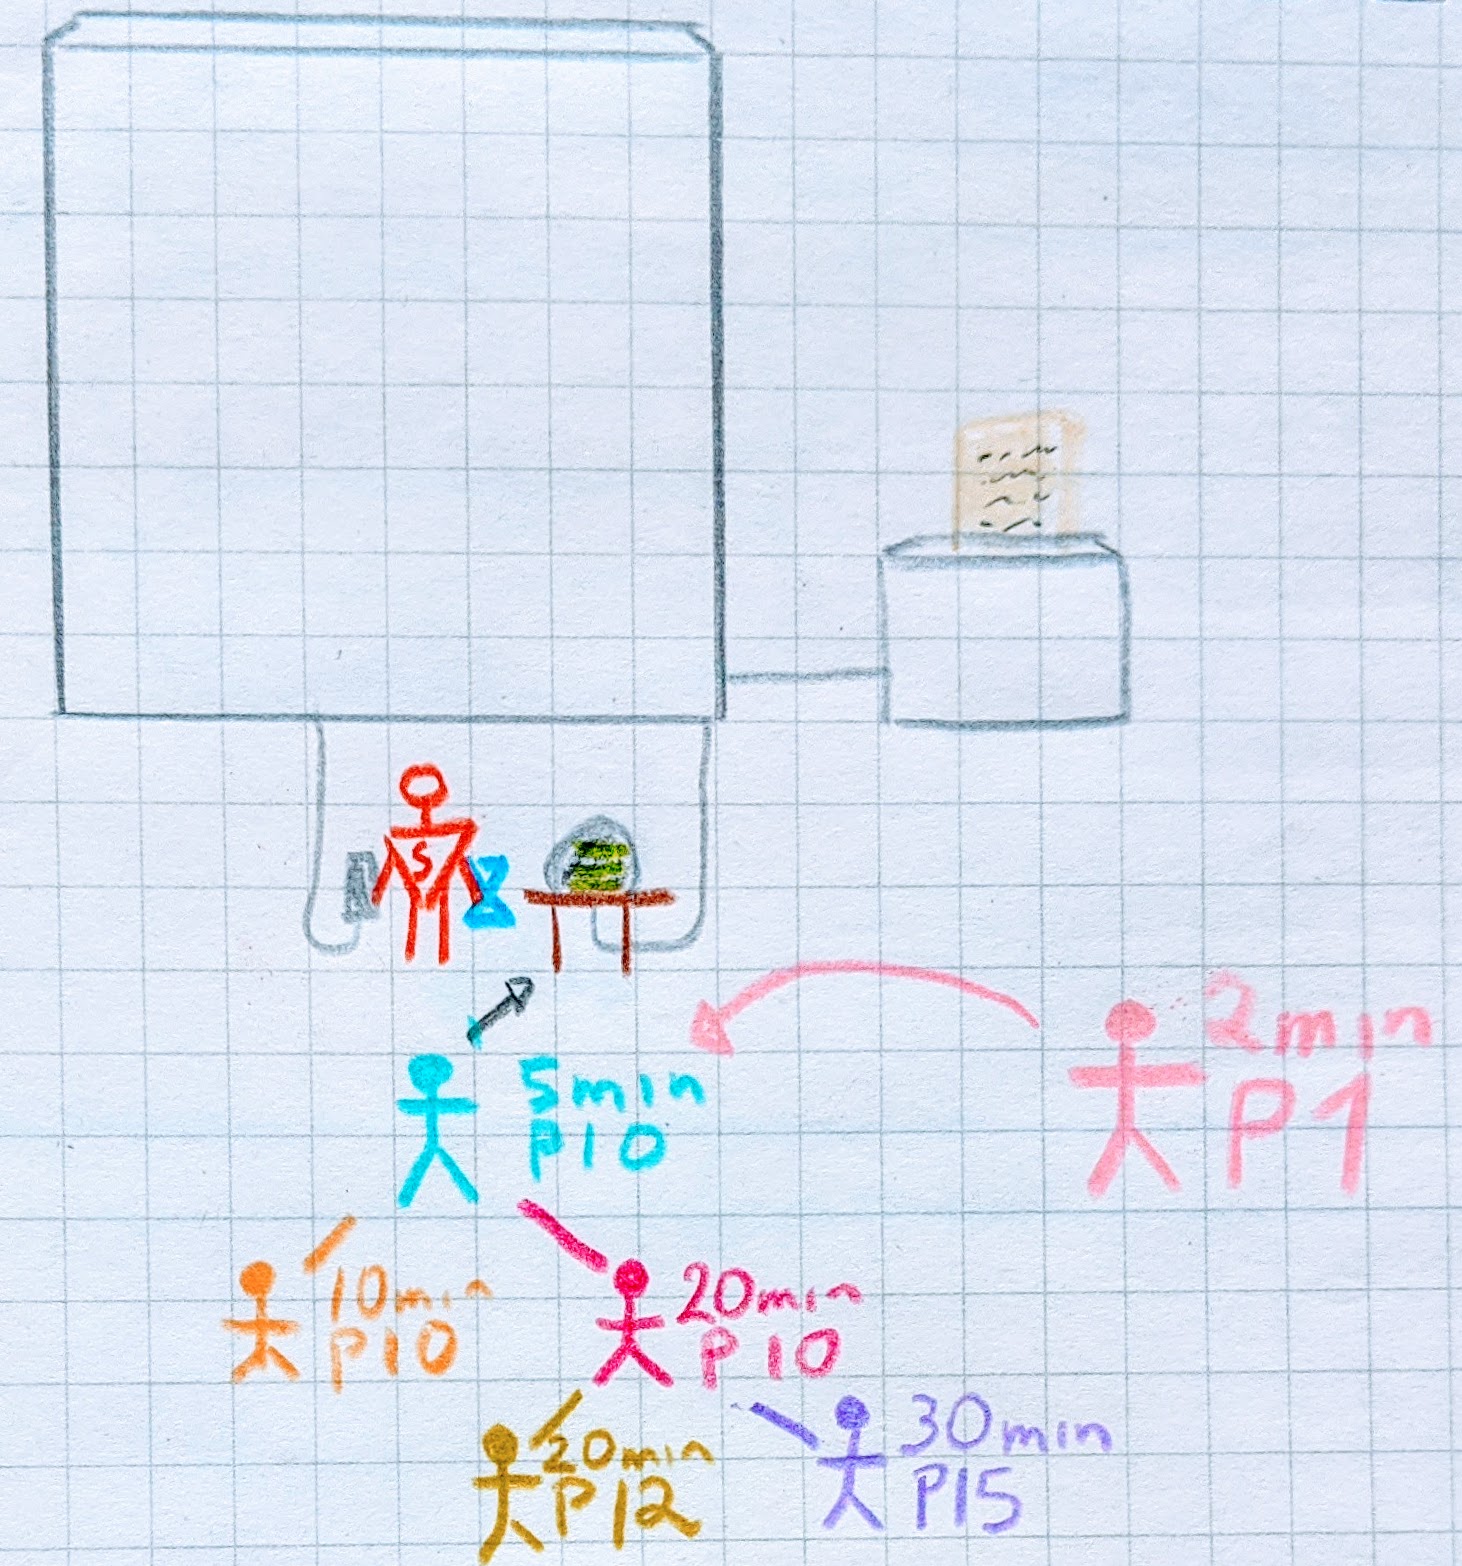 S
2min
P1
5min
P10
10min
P10
20min
P10
20min
P12
30min
P15